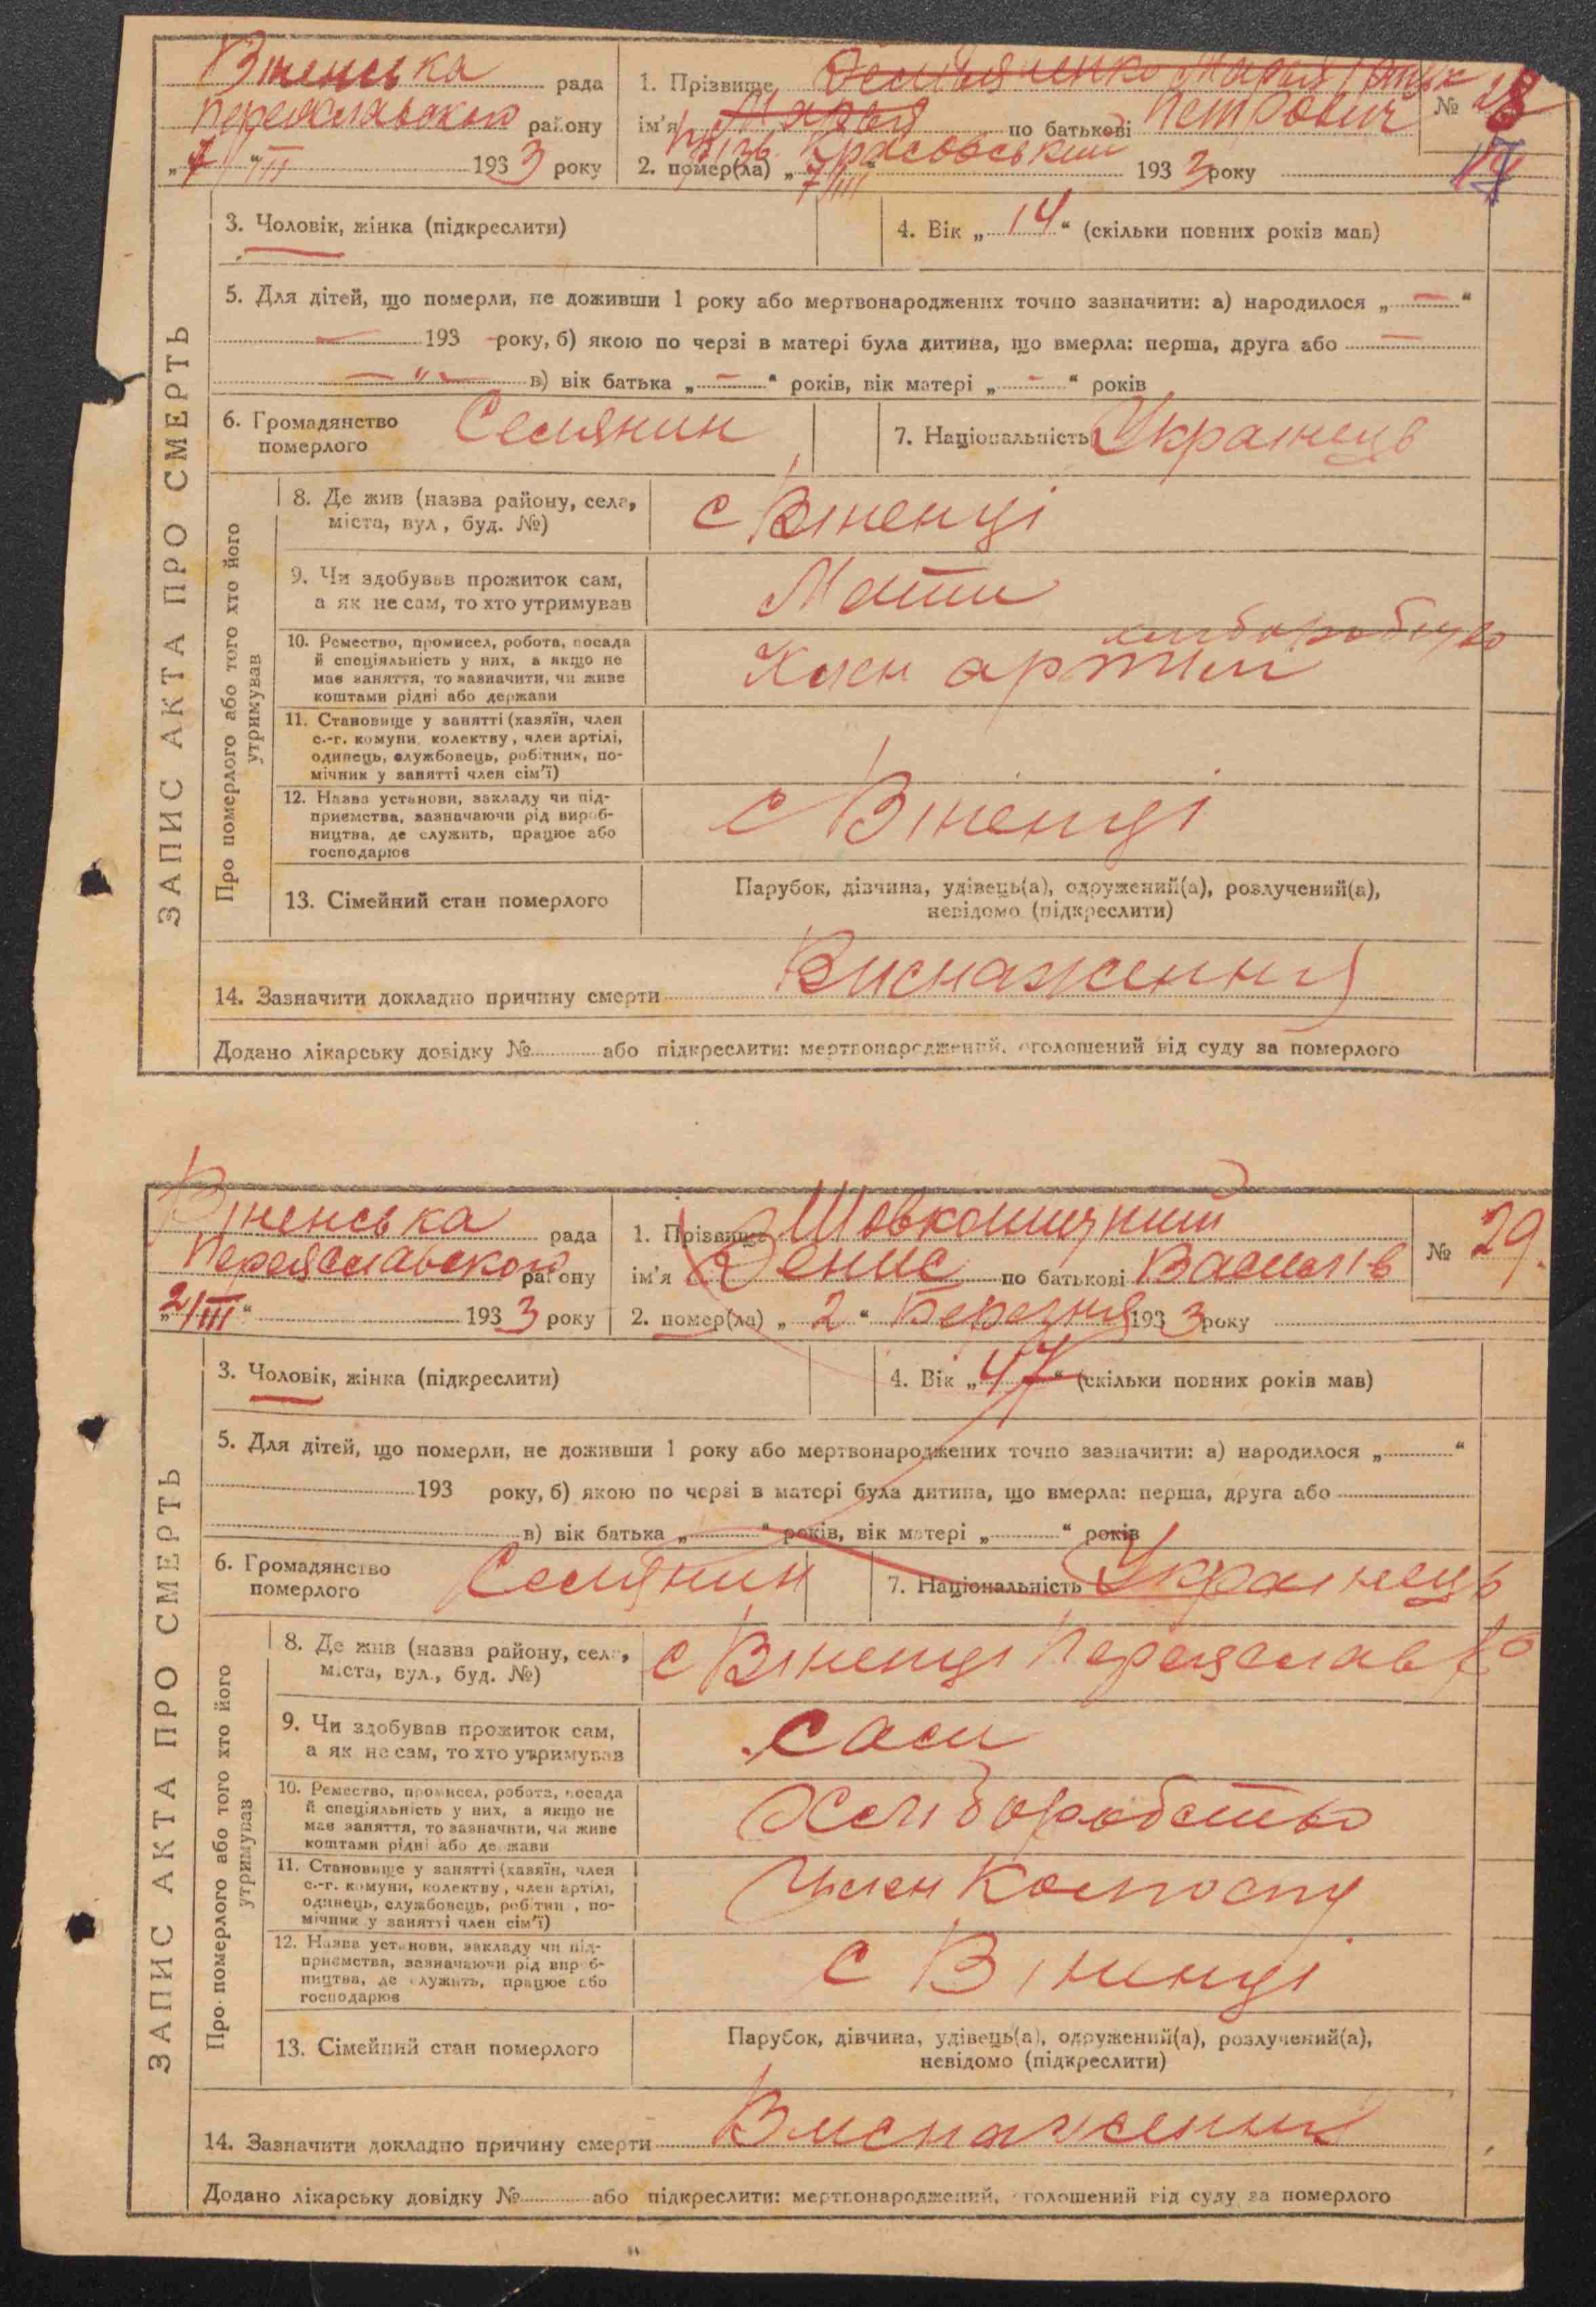 Віненська рада
Переяславського району
„7/III“ 1933 року
1. Прізвище Демьяненко Марья
ім'я Марья по батькові Петрович
Красовський
2. помер(ла) „7/III“ 1933 року
№ 28
17
3. Чоловік, жінка (підкреслити)
4. Вік „14“ (скільки повних років мав)
5. Для дітей, що померли, не доживши 1 року або мертвонароджених точно зазначити: а) народилося „—“
— 193 року, б) якою по черзі в матері була дитина, що вмерла: перша, друга або —
— „ — в) вік батька „—“ років, вік матері „—“ років
6. Громадянство
померлого
Селянин
7. Національність Українець
ЗАПИС АКТА ПРО СМЕРТЬ
Про померлого або того хто його
утримував
8. Де жив (назва району, села,
міста, вул., буд. №)
с Віненці
9. Чи здобував прожиток сам,
а як не сам, то хто утримував
Мати
10. Ремество, промисел, робота, посада
й спеціяльність у них, а якщо не
має заняття, то зазначити, чи живе
коштами рідні або держави
Член артілі
11. Становище у занятті (хазяїн, член
с.-г. комуни, колектву, член артілі,
одинець, службовець, робітник, по-
мічник у занятті член сім'ї)
12. Назва установи, закладу чи під-
приємства, зазначаючи рід вироб-
ництва, де служить, працює або
господарює
с Віненці
13. Сімейний стан померлого
Парубок, дівчина, удівець(а), одружений(а), розлучений(а),
невідомо (підкреслити)
14. Зазначити докладно причину смерти Виснаження
Додано лікарську довідку № або підкреслити: мертвонароджений, оголошений від суду за померлого
Віненська рада
Переяславського району
„2/III“ 1933 року
1. Прізвище Шовкошитний
ім'я Денис по батькові Василів
2. помер(ла) „2“ Березня 1933 року
№ 29.
3. Чоловік, жінка (підкреслити)
4. Вік „47“ (скільки повних років мав)
5. Для дітей, що померли, не доживши 1 року або мертвонароджених точно зазначити: а) народилося „ “
193 року, б) якою по черзі в матері була дитина, що вмерла: перша, друга або
в) вік батька „ “ років, вік матері „ “ років
6. Громадянство
померлого
Селянин
7. Національність Українець
ЗАПИС АКТА ПРО СМЕРТЬ
Про померлого або того хто його
утримував
8. Де жив (назва району, села,
міста, вул., буд. №)
с Віненці Переяслав
9. Чи здобував прожиток сам,
а як не сам, то хто утримував
сам
10. Ремество, промисел, робота, посада
й спеціяльність у них, а якщо не
має заняття, то зазначити, чи живе
коштами рідні або держави
Хліборобство
11. Становище у занятті (хазяїн, член
с.-г. комуни, колектву, член артілі,
одинець, службовець, робітник, по-
мічник у занятті член сім'ї)
Член Колгоспу
12. Назва установи, закладу чи під-
приємства, зазначаючи рід вироб-
ництва, де служить, працює або
господарює
с Віненці
13. Сімейний стан померлого
Парубок, дівчина, удівець(а), одружений(а), розлучений(а),
невідомо (підкреслити)
14. Зазначити докладно причину смерти Виснаження
Додано лікарську довідку № або підкреслити: мертвонароджений, оголошений від суду за померлого